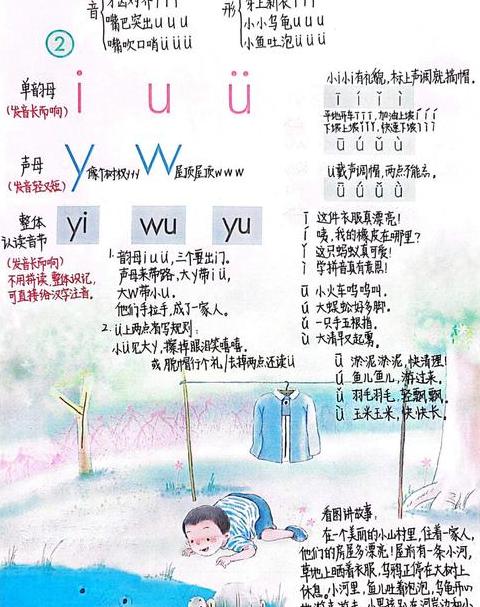 音
牙齿对齐 i i i
嘴巴突出 u u u
嘴吹口哨 ü ü ü
形
牙上刺衣 i i i
小小乌龟 u u u
小鱼吐泡 ü ü ü
2
单韵母
(发音长而响)
i u ü
小i小i有礼貌,标上声调就摘帽。
ī í ǐ ì
平地开车 ī ī ī,加油上坡 í í í
下坡上坡 ǐ ǐ ǐ,快速下坡 ì ì ì
ū ú ǔ ù
ü戴声调帽,两点不能忘。
ǖ ǘ ǚ ǜ
声母
(发音轻又短)
y 像个树杈 y y y
w 屋顶屋顶 w w w
整体
认读音节
(发音长而响)
不用拼读,整体识记,
可直接给汉字注音。
yi wu yu
1. 韵母 i u ü,三个要出门。
声母来带路,大y带 i ü,
大w带小u。
他们手拉手,成了一家人。
2. ü上两点省写规则:
小ü见大y,擦掉眼泪笑嘻嘻。
或 脱帽行个礼/去掉两点还读ü
ī 这件衣服真漂亮!
í 咦,我的橡皮在哪里?
ǐ 这只蚂蚁真可爱!
ì 学拼音真有意思!
ū 小火车呜呜叫。
ú 大蜈蚣好多脚。
ǔ 一只手五根指。
ù 大清早起雾。
ǖ 淤泥淤泥,快清理!
ǘ 鱼儿鱼儿,游过来。
ǚ 羽毛羽毛,轻飘飘。
ǜ 玉米玉米,快快长。
看图讲故事:
在一个美丽的小山村里,住着一家人,
他们的房屋多漂亮!屋前有一条小河,
草地上晒着衣服,乌鸦正停在大树上
休息。小河里,鱼儿吐着泡泡,乌龟开心